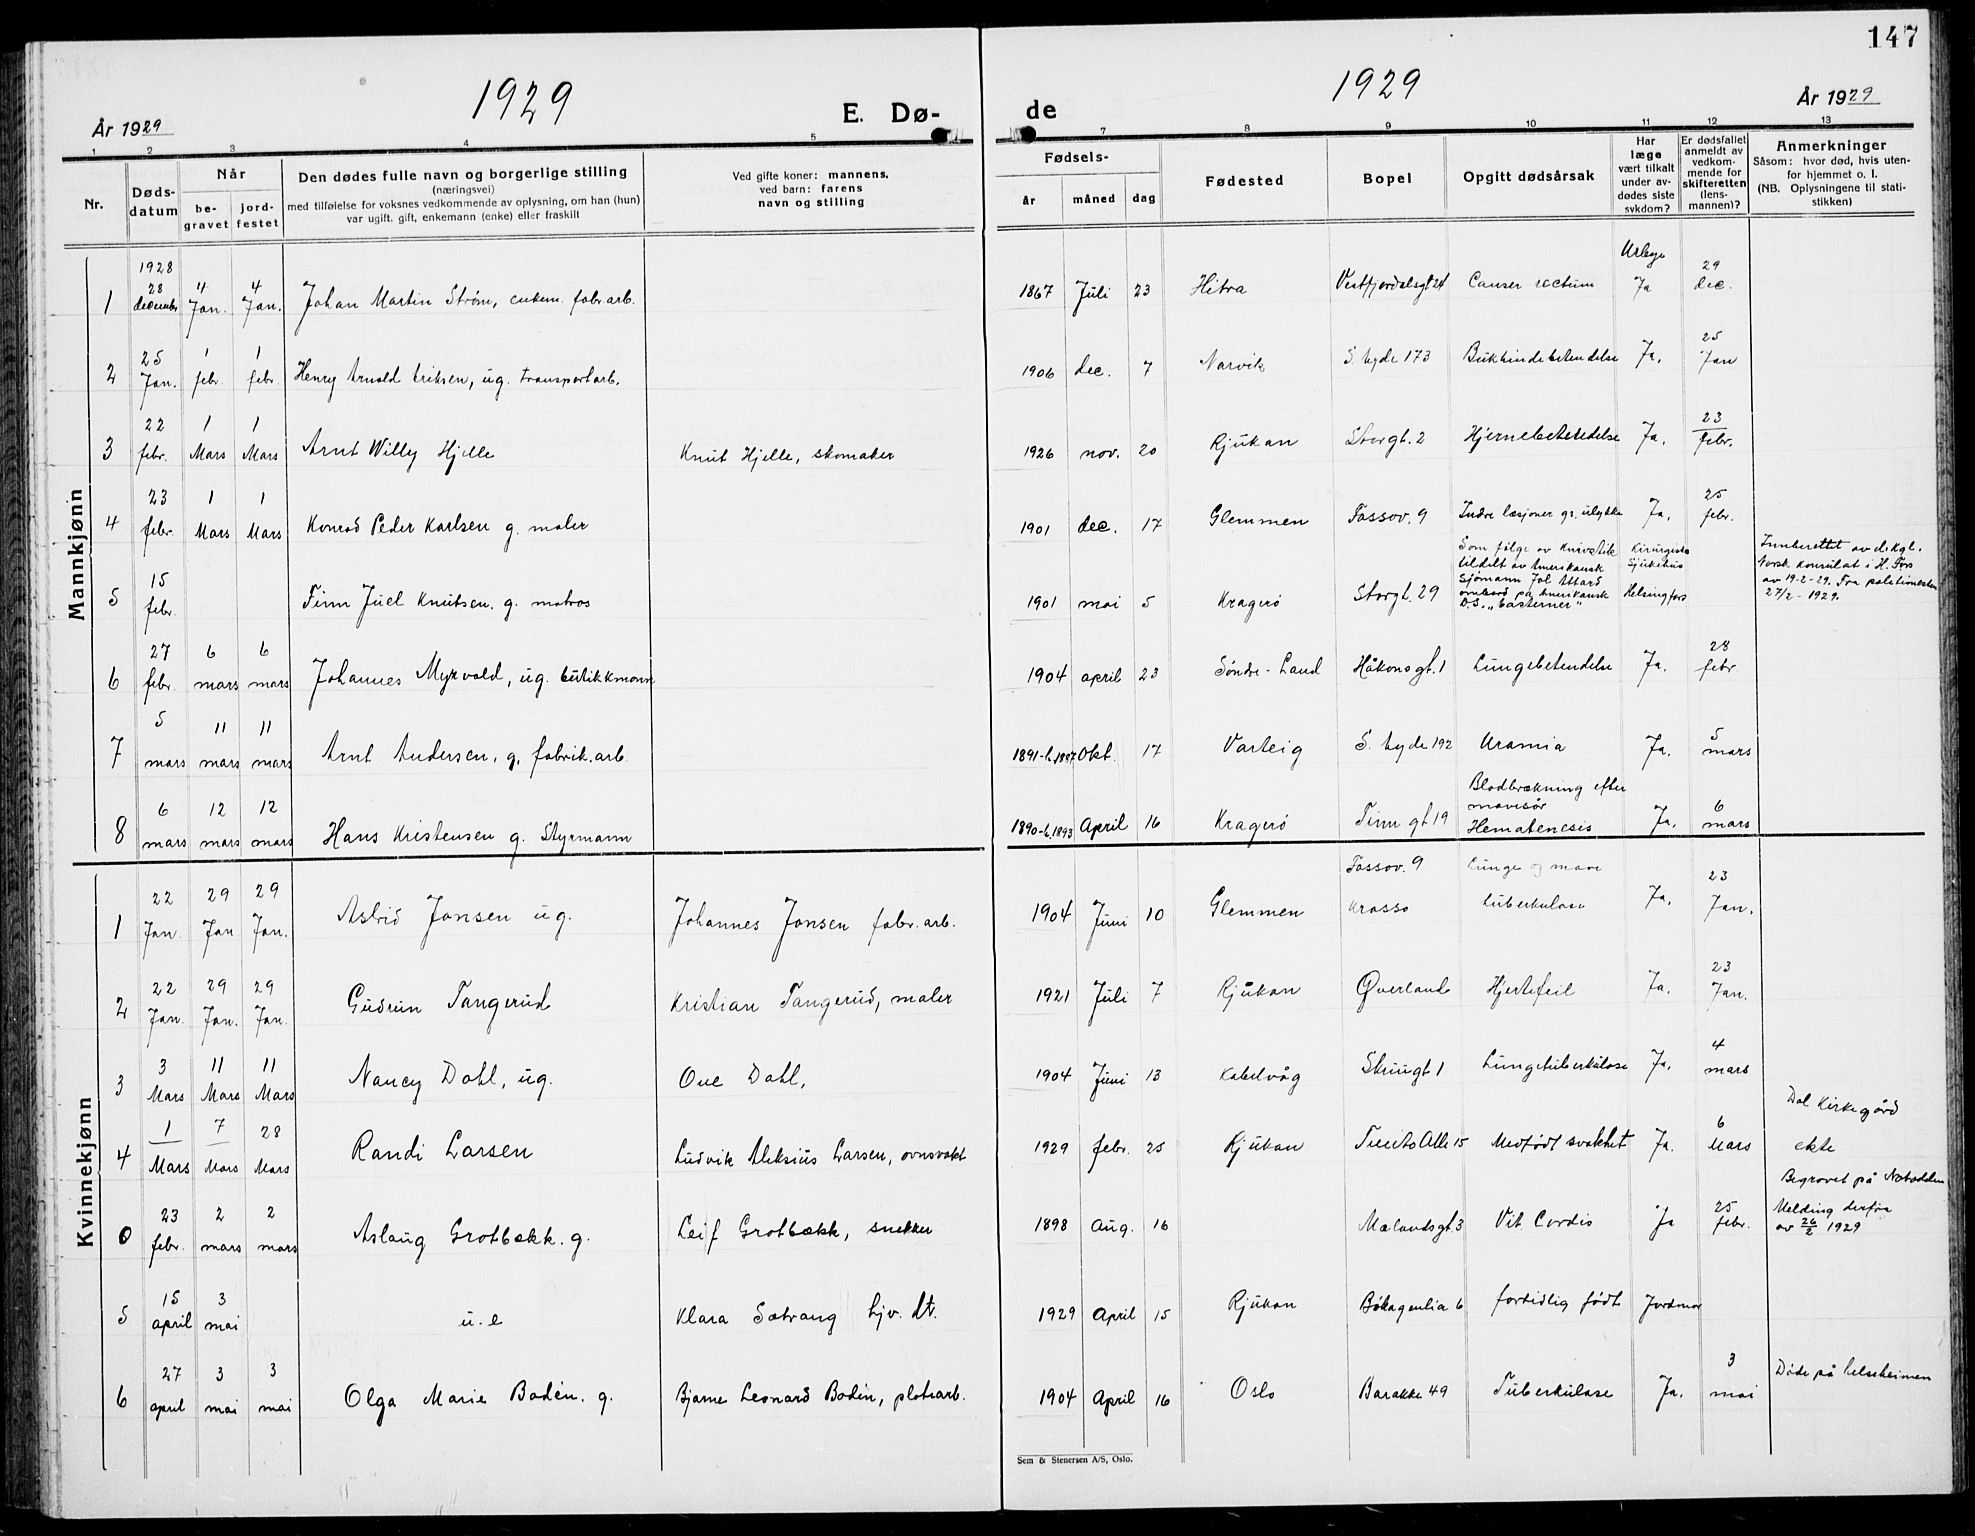 147
1929
1929
År 1929
E. Dø-
de
År 1929
1 2 3 4 5 7 8 9 10 11 12 13
Nr.
Døds-
datum
Når
be-
gravet
jord-
festet
Den dødes fulle navn og borgerlige stilling
(næringsvei)
med tilføielse for voksnes vedkommende av oplysning, om han (hun)
var ugift, gift, enkemann (enke) eller fraskilt
Ved gifte koner: mannens,
ved barn: farens
navn og stilling
Fødsels-
år måned dag
Fødested
Bopel
Opgitt dødsårsak
Har
læge
vært tilkalt
under av-
dødes siste
sykdom?
Er dødsfallet
anmeldt av
vedkom-
mende for
skifteretten
(lens-
mannen)?
Anmerkninger
Såsom: hvor død, hvis uten-
for hjemmet o. l.
(NB. Oplysningene til stati-
stikken)
Mannkjønn
1 1928 28 december 4 Jan. 4 Jan. Johan Martin Strøm, enkem. fabr.arb. 1867 Juli 23 Hitra Vestfjordalsgt 24 Canser rectum Ja 29 dec.
2 25 Jan. 1 febr. 1 febr. Henry Arnold Eriksen, ug. transportarb. 1906 dec. 7 Narvik S. byde 173 Bukhindebetendelse Ja. 25 Jan
3 22 febr. 1 Mars 1 Mars Arnt Willy Hjelle Knut Hjelle, skomaker 1926 nov. 20 Rjukan Storgt. 2 Hjernebetendelse Ja. 23 febr.
4 23 febr. 1 Mars 1 Mars Konrad Peder Karlsen g. maler 1901 dec. 17 Glemmen Fossov. 9 Indre læsjoner gr. ulykke Ja. 25 febr.
5 15 febr. Finn Juel Knutsen. g. matros 1901 mai 5 Kragerø Storgt. 29
Som følge av knivstik
tildelt av Amerikansk
Sjømann
ombord på Amerikansk
D.S. „Easterner"
Kirurgiske
Sjukehus
Helsingfors
Innberettet av d. Kgl.
Norsk Konsulat i H. Fors
av 19-2-29. Fra
27/2 - 1929.
6 27 febr. 6 mars 6 mars Johannes Myrvold, ug. butikkmann 1904 april 23 Søndre-Land Håkonsgt. 1 Lungebetendelse Ja. 28 febr
7 5 mars 11 mars 11 mars Arnt Andersen, g. fabrik.arb. 1891-t.1897 Okt. 17 Varteig S. byde 192 Uramia Ja. 5 mars
8 6 mars 12 mars 12 mars Hans Kristensen g. Styrmann 1890-t.1893 April 16 Kragerø Finn gt. 19
Blodbrækning efter
mavesår
Hematencsis
Ja. 6 mars
Kvinnekjønn
1 22 Jan. 29 Jan 29 Jan. Astrid Jansen ug. Johannes Jansen fabr.arb. 1904 Juni 10 Glemmen Fossov. 9 Krosso Lunge og mave tuberkulose Ja. 23 Jan.
2 22 Jan. 29 Jan. 29 Jan. Gudrun Tangerud Kristian Tangerud, maler 1921 Juli 7 Rjukan Øverland Hjertefeil Ja. 23 Jan.
3 3 Mars 11 Mars 11 Mars Nancy Dahl, ug. Ove Dahl, 1904 Juni 13 Kabelvåg Skriugt 1 Lungetuberkulose Ja. 4 mars
4 1 Mars 7 Mars 28 Mars Randi Larsen Ludvik Aleksius Larsen, ovnsvakt 1929 febr. 25 Rjukan Tveito Alle 15 Medfødt svakhet Ja. 6 Mars
Dal Kirkegård
ekte
0 23 febr. 2 mars 2 mars Aslaug Grotbækk. g. Leif Grotbækk, snekker 1898 aug. 16 Mælandsgt. 3 Vit. Cordis Ja 25 febr.
Begravet på Notodden
Melding derfra
av 26/2 1929
5 15 april 3 mai u.e Klara Satrang hjv. dt. 1929 April 15 Rjukan Bøkagenlia 6 fortidlig født Jordmor
6 27 april 3 mai 3 mai Olga Marie Bodén. g. Bjarne Leonard Bodén, platearb. 1904 April 16 Oslo Barakke 49 Tuberkulose Ja. 3 mai
Døde på helseheimen
Sem & Stenersen A/S, Oslo.